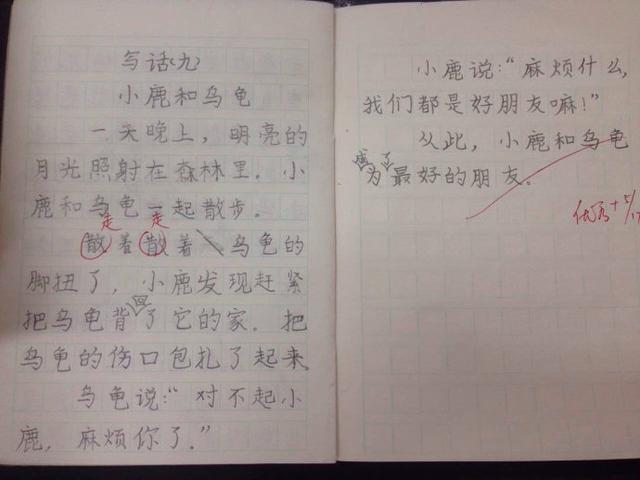 写话(九)
小鹿和乌龟
一天晚上，明亮的
月光照射在森林里。小
鹿和乌龟一起散步。
走 走
散着散着、乌龟的
脚扭了，小鹿发现赶紧
回
把乌龟背了它的家．把
乌龟的伤口包扎了起来
乌龟说：“对不起小
鹿，麻烦你了．”
小鹿说：“麻烦什么，
我们都是好朋友嘛！”
从此，小鹿和乌龟
成了
为最好的朋友。
优秀+5/17